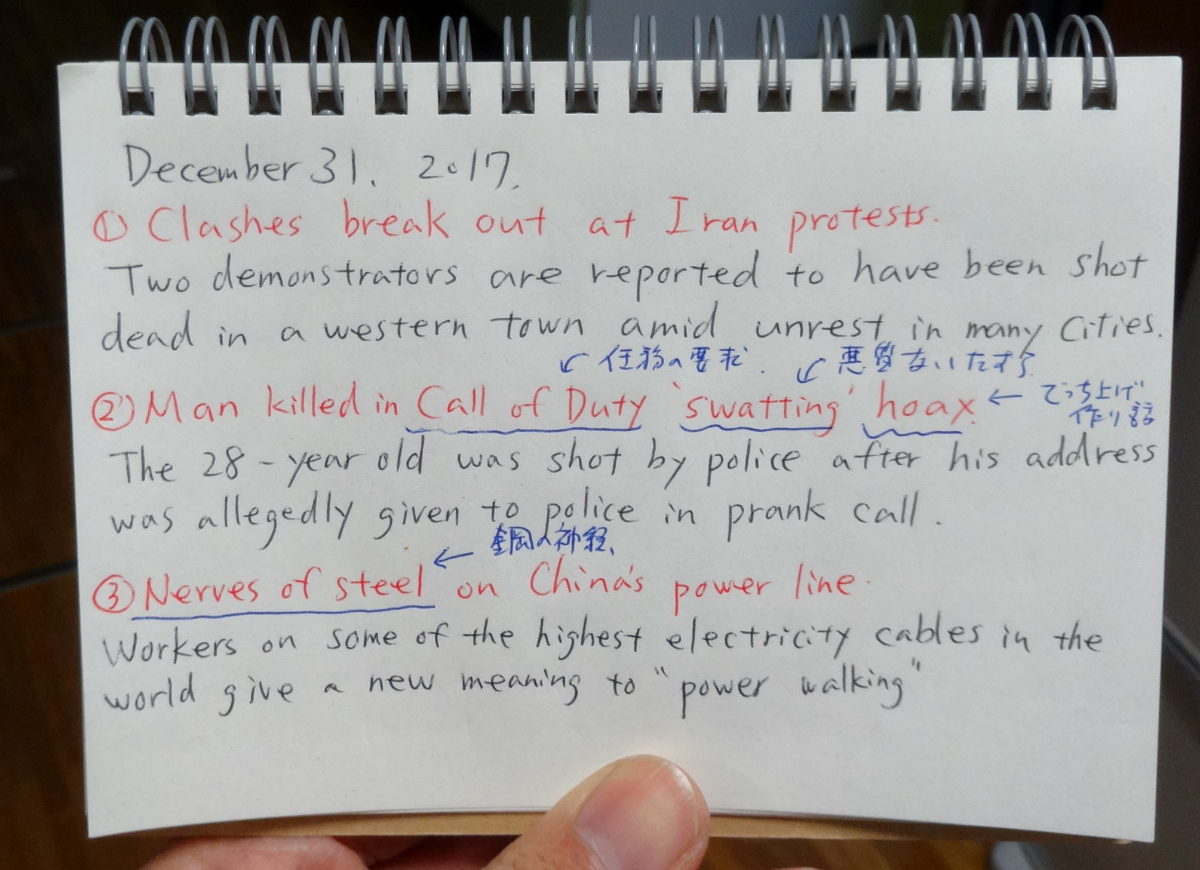 December 31. 2017.
① Clashes break out at Iran protests.
Two demonstrators are reported to have been shot
dead in a western town amid unrest in many Cities.
↙ 任務の要求. ↙ 悪質ないたずら
② Man killed in Call of Duty 'swatting' hoax. ← でっち上げ
作り話
The 28-year old was shot by police after his address
was allegedly given to police in prank call.
← 鋼の神経、
③ Nerves of steel on China's power line.
Workers on some of the highest electricity cables in the
world give a new meaning to "power walking"